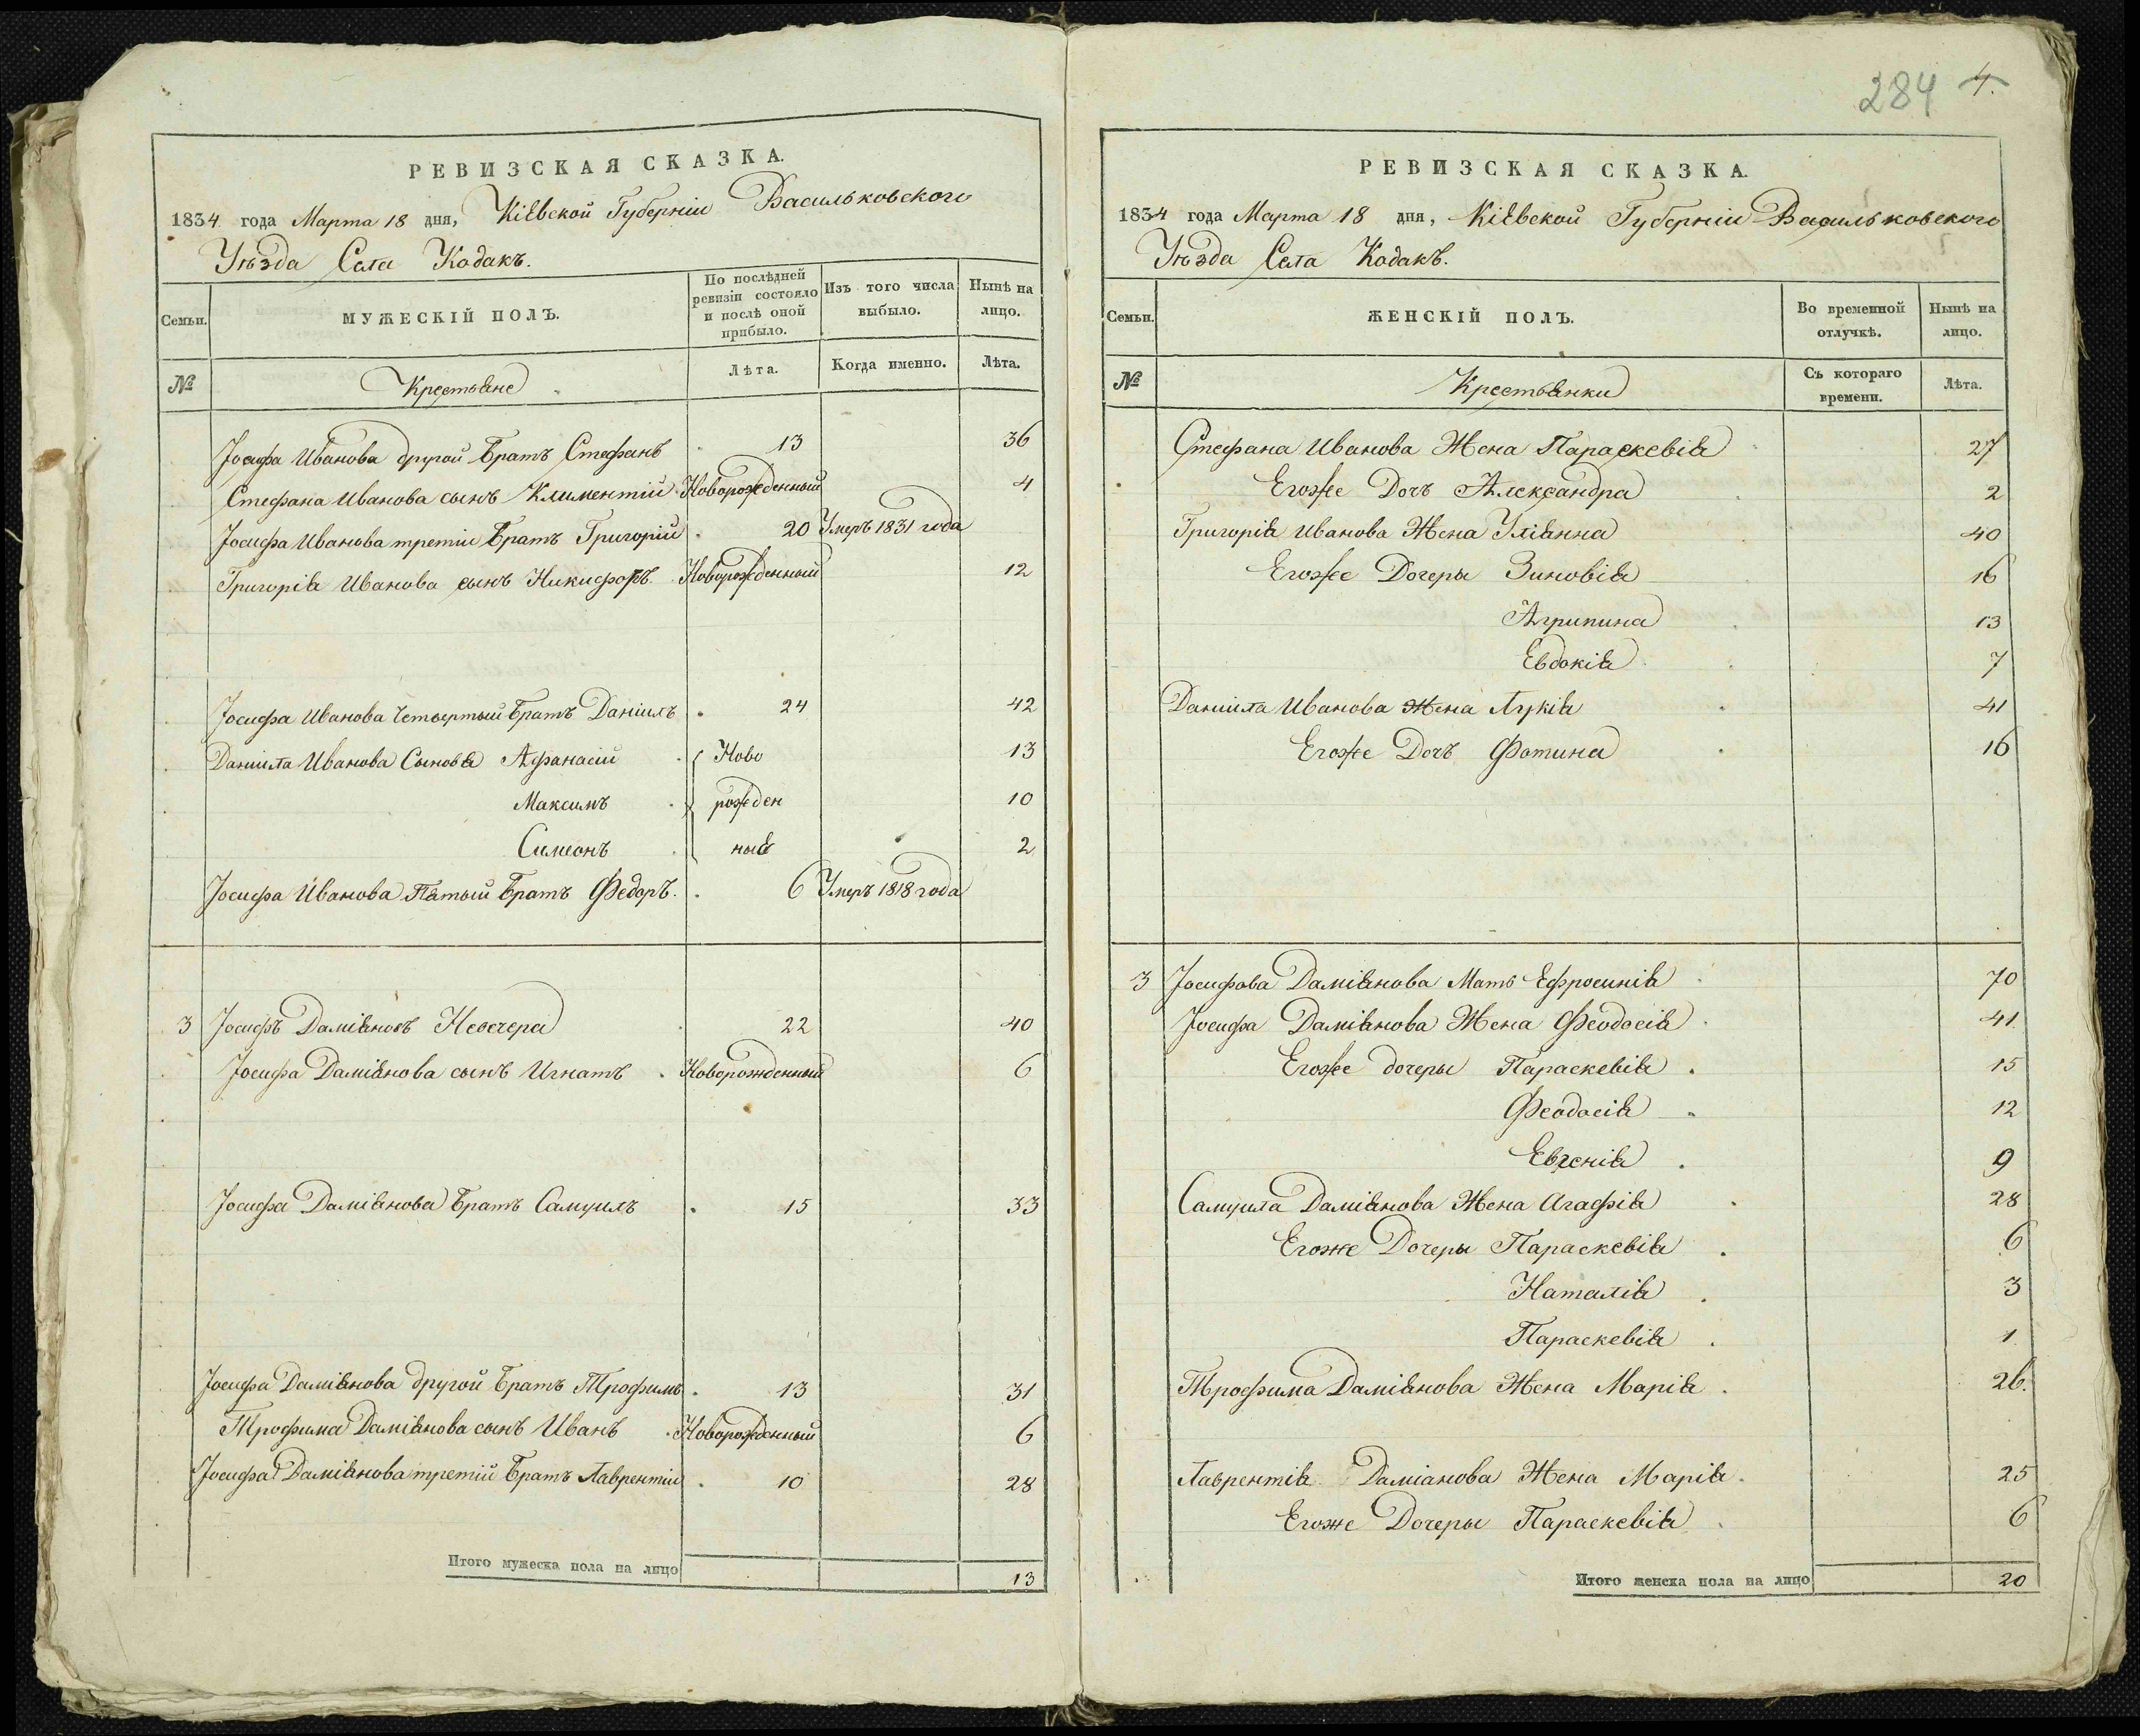 284 4.
РЕВИЗСКАЯ СКАЗКА.
1834 года Марта 18 дня, Кіевской Губерніи Васильковского
Уѣзда Села Кодакъ.
Семьи. МУЖЕСКІЙ ПОЛЪ. По послѣдней ревизіи состояло и послѣ оной прибыло. Изъ того числа выбыло. Нынѣ на лицо.
№ Крестьяне Лѣта. Когда именно. Лѣта.
Іосифа Иванова другой Братъ Стефанъ 13 36
Стефана Иванова сынъ Климентій Новорожденный 4
Іосифа Иванова третій Братъ Григорій 20 Умеръ 1831 года
Григорія Иванова сынъ Никифоръ Новорожденный 12
Іосифа Иванова Четвертый Братъ Даніилъ 24 42
Даніила Иванова Сыновья Афанасій Ново 13
Максимъ рожден 10
Симеонъ ныя 2
Іосифа Иванова Пятый Братъ Федоръ. 6 Умеръ 1818 года
3 Іосифъ Даміяновъ Невечеря 22 40
Іосифа Даміянова сынъ Игнатъ Новорожденный 6
Іосифа Даміянова Братъ Самуилъ 15 33
Іосифа Даміянова другой Братъ Трофимъ 13 31
Трофима Даміянова сынъ Иванъ Новорожденный 6
Іосифа Даміянова третій Братъ Лаврентій 10 28
Итого мужеска пола на лицо 13
РЕВИЗСКАЯ СКАЗКА.
1834 года Марта 18 дня, Кіевской Губерніи Васильковского
Уѣзда Села Кодакъ.
Семьи. ЖЕНСКІЙ ПОЛЪ. Во временной отлучкѣ. Нынѣ на лицо.
№ Крестьянки Съ котораго времени. Лѣта.
Стефана Иванова Жена Параскевія 27
Егоже Дочъ Александра 2
Григорія Иванова Жена Уліянна 40
Егоже Дочеры Зиновія 16
Агрипина 13
Евдокія 7
Даніила Иванова Жена Лукія 41
Егоже Дочъ Фотина 16
3 Іосифова Даміянова Мать Ефросинія 70
Іосифа Даміянова Жена Феодосія 41
Егоже дочеры Параскевія 15
Феодосія 12
Евгенія 9
Самуила Даміянова Жена Агафія 28
Егоже Дочеры Параскевія 6
Наталія 3
Параскевія 1
Трофима Даміянова Жена Марія 26.
Лаврентія Даміанова Жена Марія 25
Егоже Дочеры Параскевія 6
Итого женска пола на лицо 20